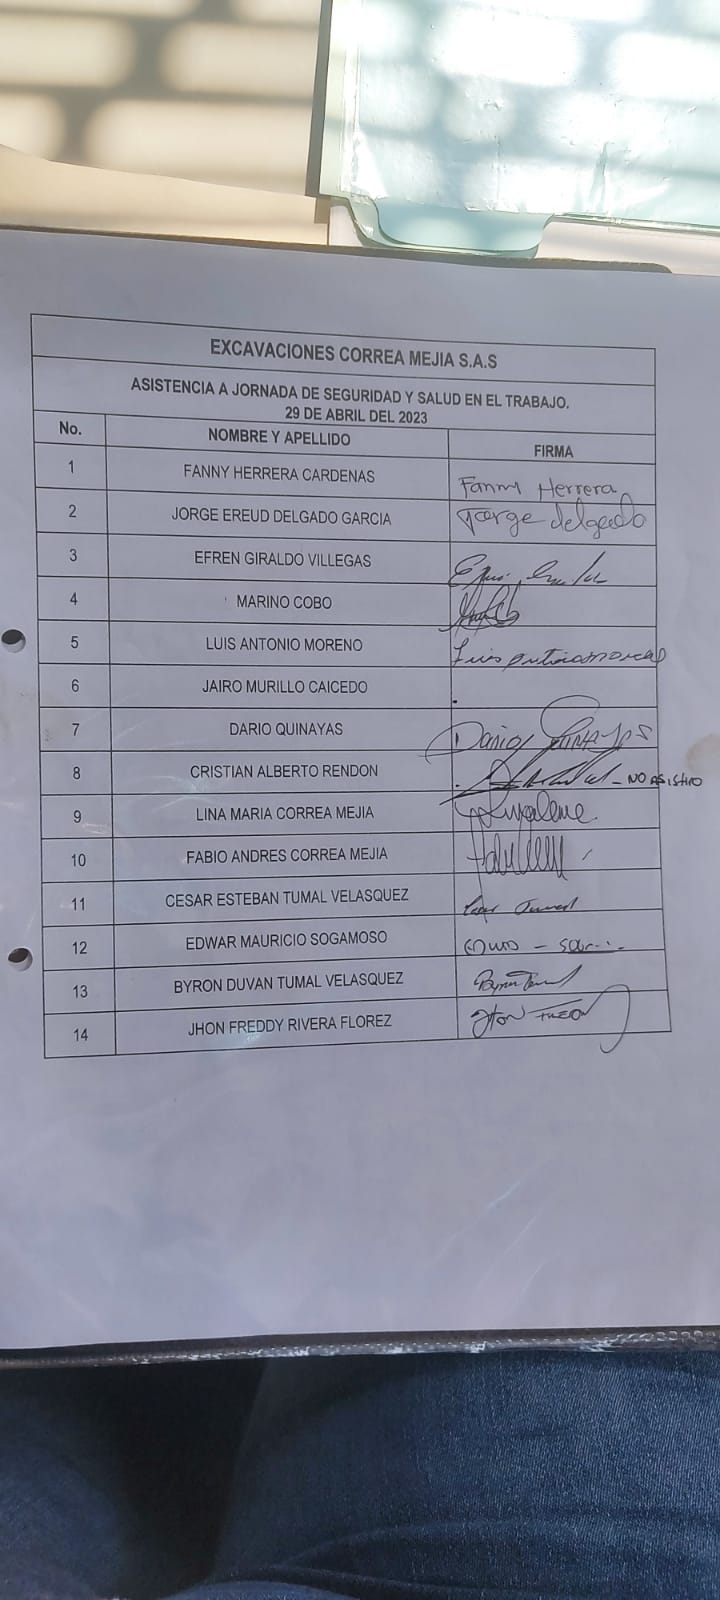 EXCAVACIONES CORREA MEJIA S.A.S
ASISTENCIA A JORNADA DE SEGURIDAD Y SALUD EN EL TRABAJO.
29 DE ABRIL DEL 2023
No. NOMBRE Y APELLIDO FIRMA
1 FANNY HERRERA CARDENAS Fanny Herrera
2 JORGE EREUD DELGADO GARCIA Jorge delgado
3 EFREN GIRALDO VILLEGAS
4 MARINO COBO
5 LUIS ANTONIO MORENO Luis
6 JAIRO MURILLO CAICEDO
7 DARIO QUINAYAS Dario QUINAYAS
8 CRISTIAN ALBERTO RENDON - NO ASISTIO
9 LINA MARIA CORREA MEJIA
10 FABIO ANDRES CORREA MEJIA
11 CESAR ESTEBAN TUMAL VELASQUEZ Cesar Tumal
12 EDWAR MAURICIO SOGAMOSO
13 BYRON DUVAN TUMAL VELASQUEZ Byron Tumal
14 JHON FREDDY RIVERA FLOREZ JHON